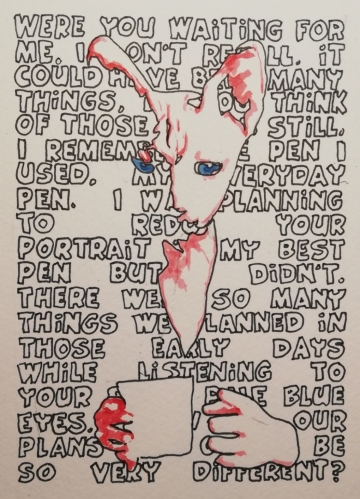 WERE YOU WAITING FOR
ME. I DON'T RECALL. IT
COULD HAVE BEEN MANY
THINGS, THINK
OF THOSE STILL.
I REMEMBER THE PEN I
USED. MY EVERYDAY
PEN. I WAS PLANNING
TO REDO YOUR
PORTRAIT MY BEST
PEN BUT DIDN'T.
THERE WERE SO MANY
THINGS WE PLANNED IN
THOSE EARLY DAYS
WHILE LISTENING TO
YOUR BLUE BLUE
EYES. OUR
PLANS BE
SO VERY DIFFERENT?